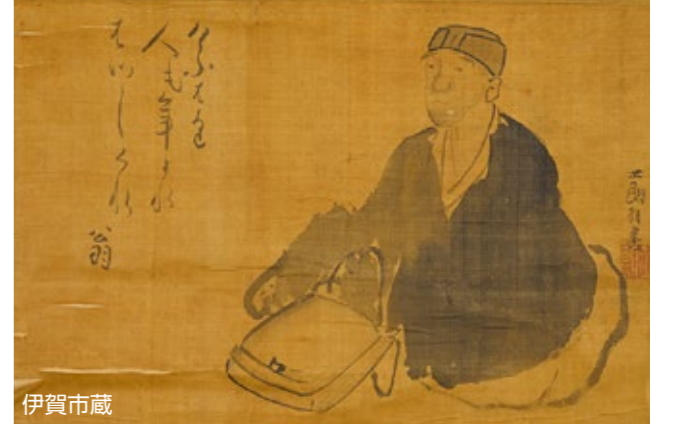 けふはかり
人も年よれ
はつしくれ
翁
伊賀市蔵